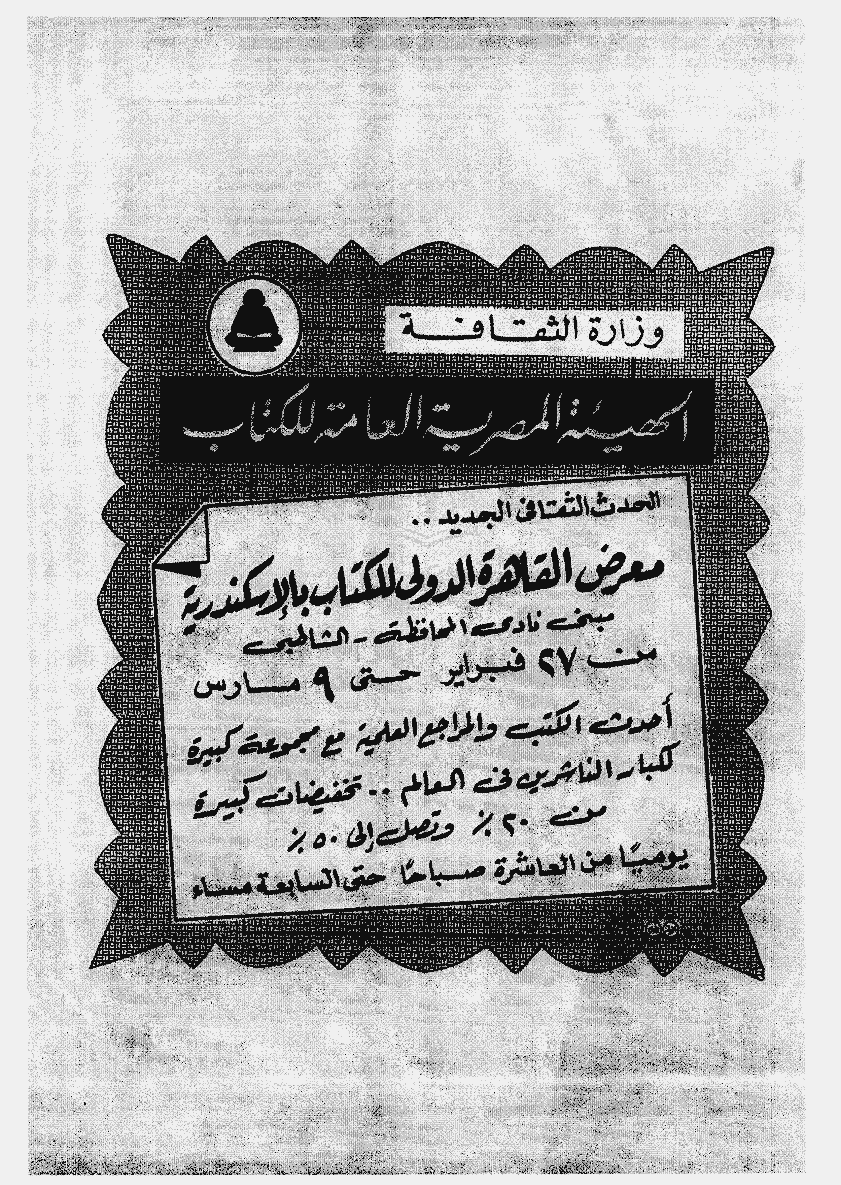 وزارة الثقافة
الهيئة المصرية العامة للكتاب
الحدث الثقافى الجديد ..
معرض القاهرة الدولى للكتاب بالإسكندرية
مبنى نادى المحافظة - الشاطبى
من ٢٧ فبراير حتى ٩ مارس
أحدث الكتب والمراجع العلمية مع مجموعة كبيرة
لكبار الناشرين فى العالم .. تخفيضات كبيرة
من ٢٠٪ وتصل إلى ٥٠٪
يوميًا من العاشرة صباحًا حتى السابعة مساء